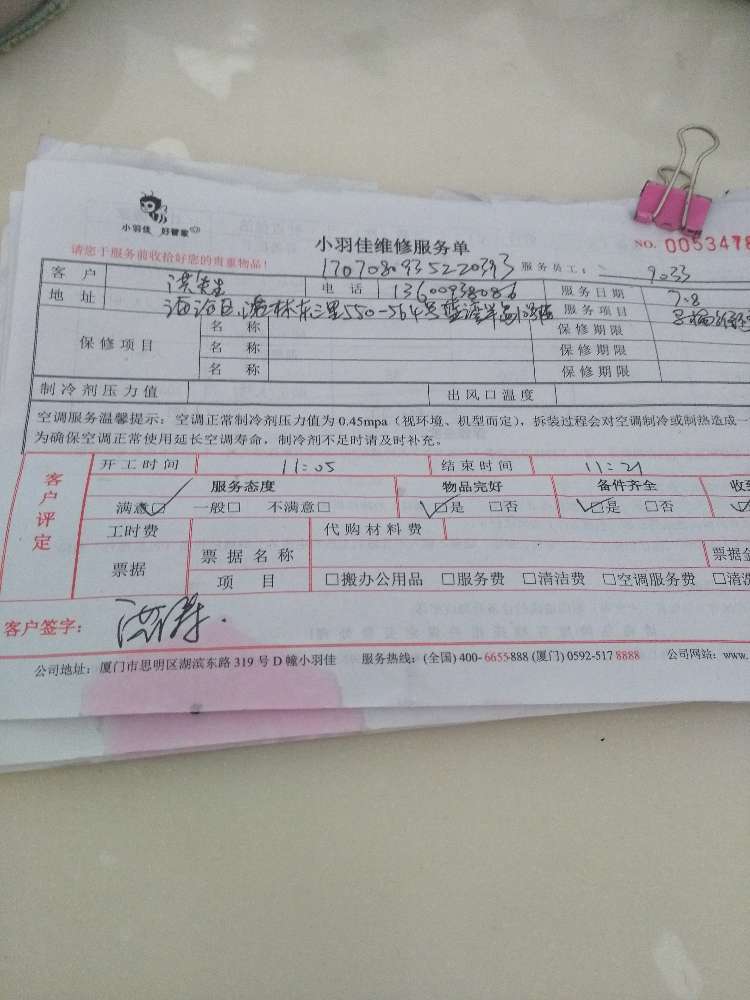 小羽佳 好管家
请您于服务前收拾好您的贵重物品!
小羽佳维修服务单
NO. 0053478
17070809352220393 服务员工: 9033
客户 洪先生 电话 13600938086 服务日期 7.8
地址 海沧区 林东三里550-564号 服务项目
保修项目 名称 保修期限
名称 保修期限
名称 保修期限
制冷剂压力值 出风口温度
空调服务温馨提示：空调正常制冷剂压力值为 0.45mpa（视环境、机型而定），拆装过程会对空调制冷或制热造成一
为确保空调正常使用延长空调寿命，制冷剂不足时请及时补充。
客户评定
开工时间 11:05 结束时间 11:21
服务态度 物品完好 备件齐全 收
满意☑ 一般□ 不满意□ ☑是 □否 ☑是 □否
工时费 代购材料费
票据 票据名称 票据金
项目 □搬办公用品 □服务费 □清洁费 □空调服务费 □清洗
客户签字:
公司地址: 厦门市思明区湖滨东路 319 号 D 幢小羽佳 服务热线: (全国) 400-6655-888 (厦门) 0592-517 8888 公司网站: www.